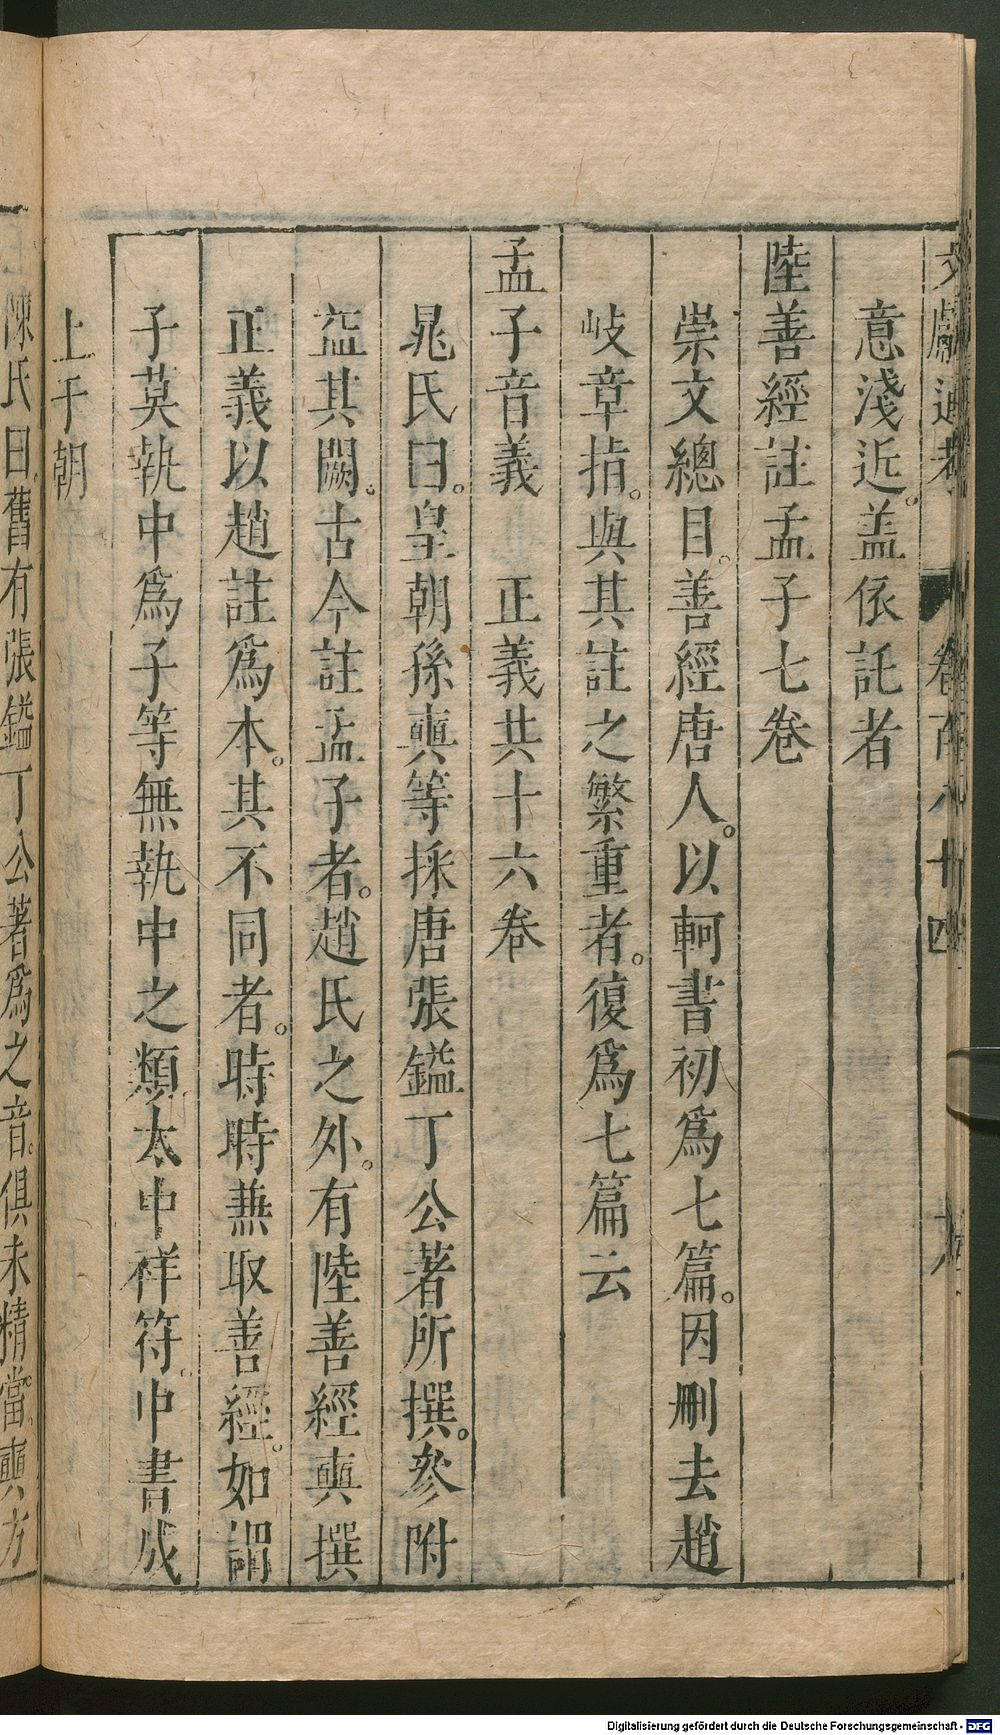 文獻通考 卷百八十四 六
意淺近。盖依託者
陸善經註孟子七卷
崇文總目。善經唐人。以軻書初爲七篇。因刪去趙
岐章指。與其註之繁重者。復爲七篇云
孟子音義 正義共十六卷
晁氏曰。皇朝孫奭等採唐張鎰丁公著所撰。參附
益其闕。古今註孟子者。趙氏之外。有陸善經奭撰
正義以趙註爲本。其不同者。時時兼取善經。如謂
子莫執中爲子等無執中之類太中祥符。中書成
上于朝
陳氏曰。舊有張鎰丁公著爲之音。俱未精當。奭方
Digitalisierung gefördert durch die Deutsche Forschungsgemeinschaft - DFG